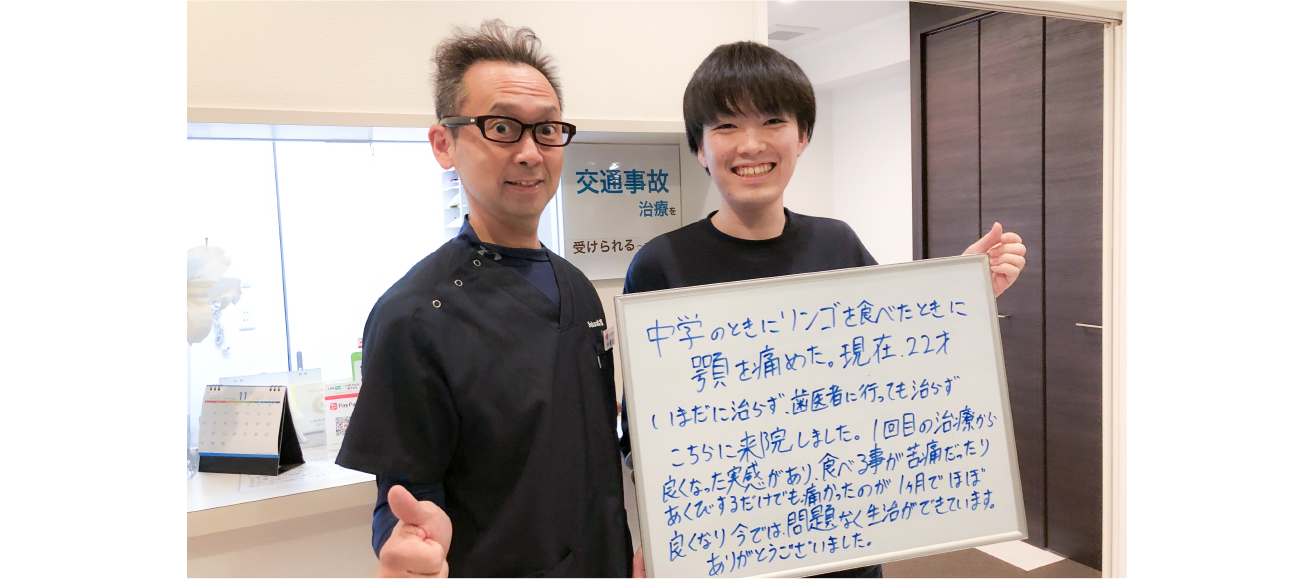 交通事故
治療を
受けられる
11
PayPay
中学のときにリンゴを食べたときに
顎を痛めた。現在、22才
いまだに治らず、歯医者に行っても治らず
こちらに来院しました。1回目の治療から
良くなった実感があり、食べる事が苦痛だったり
あくびするだけでも痛かったのが1ヶ月でほぼ
良くなり今では、問題なく生活ができています。
ありがとうございました。